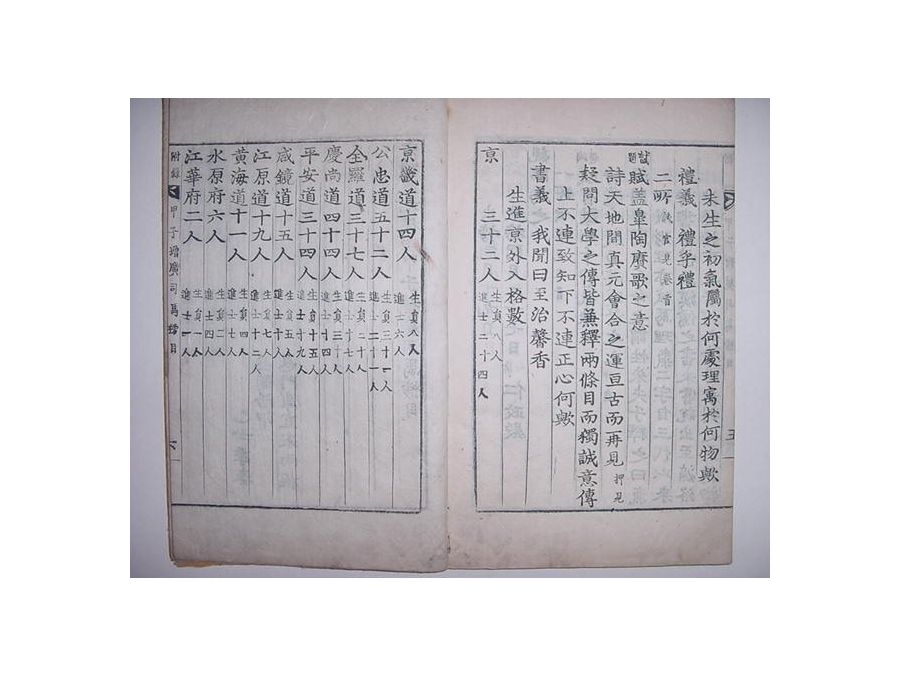 未生之初氣屬於何處理寓於何物歟
禮義 禮乎禮
二所 試官見卷首
試題
賦蓋皐陶賡歌之意
詩天地間真元會合之運亘古而一再見 押見
疑問大學之傳皆兼釋兩條目而獨誠意傳
上不連致知下不連正心何歟
書義 我聞曰至治馨香
生進京外入格數
京 三十二人 生員八人 進士二十四人
五
京畿道十四人 生員八人 進士六人
公忠道五十二人 生員三十一人 進士二十一人
全羅道三十七人 生員二十人 進士十七人
慶尚道四十四人 生員三十人 進士十四人
平安道三十四人 生員十五人 進士十九人
咸鏡道十五人 生員五人 進士十人
江原道十九人 生員七人 進士十二人
黃海道十一人 生員四人 進士七人
水原府六人 生員二人 進士四人
江華府二人 生員一人 進士一人
附錄 甲子增廣司馬榜目 六